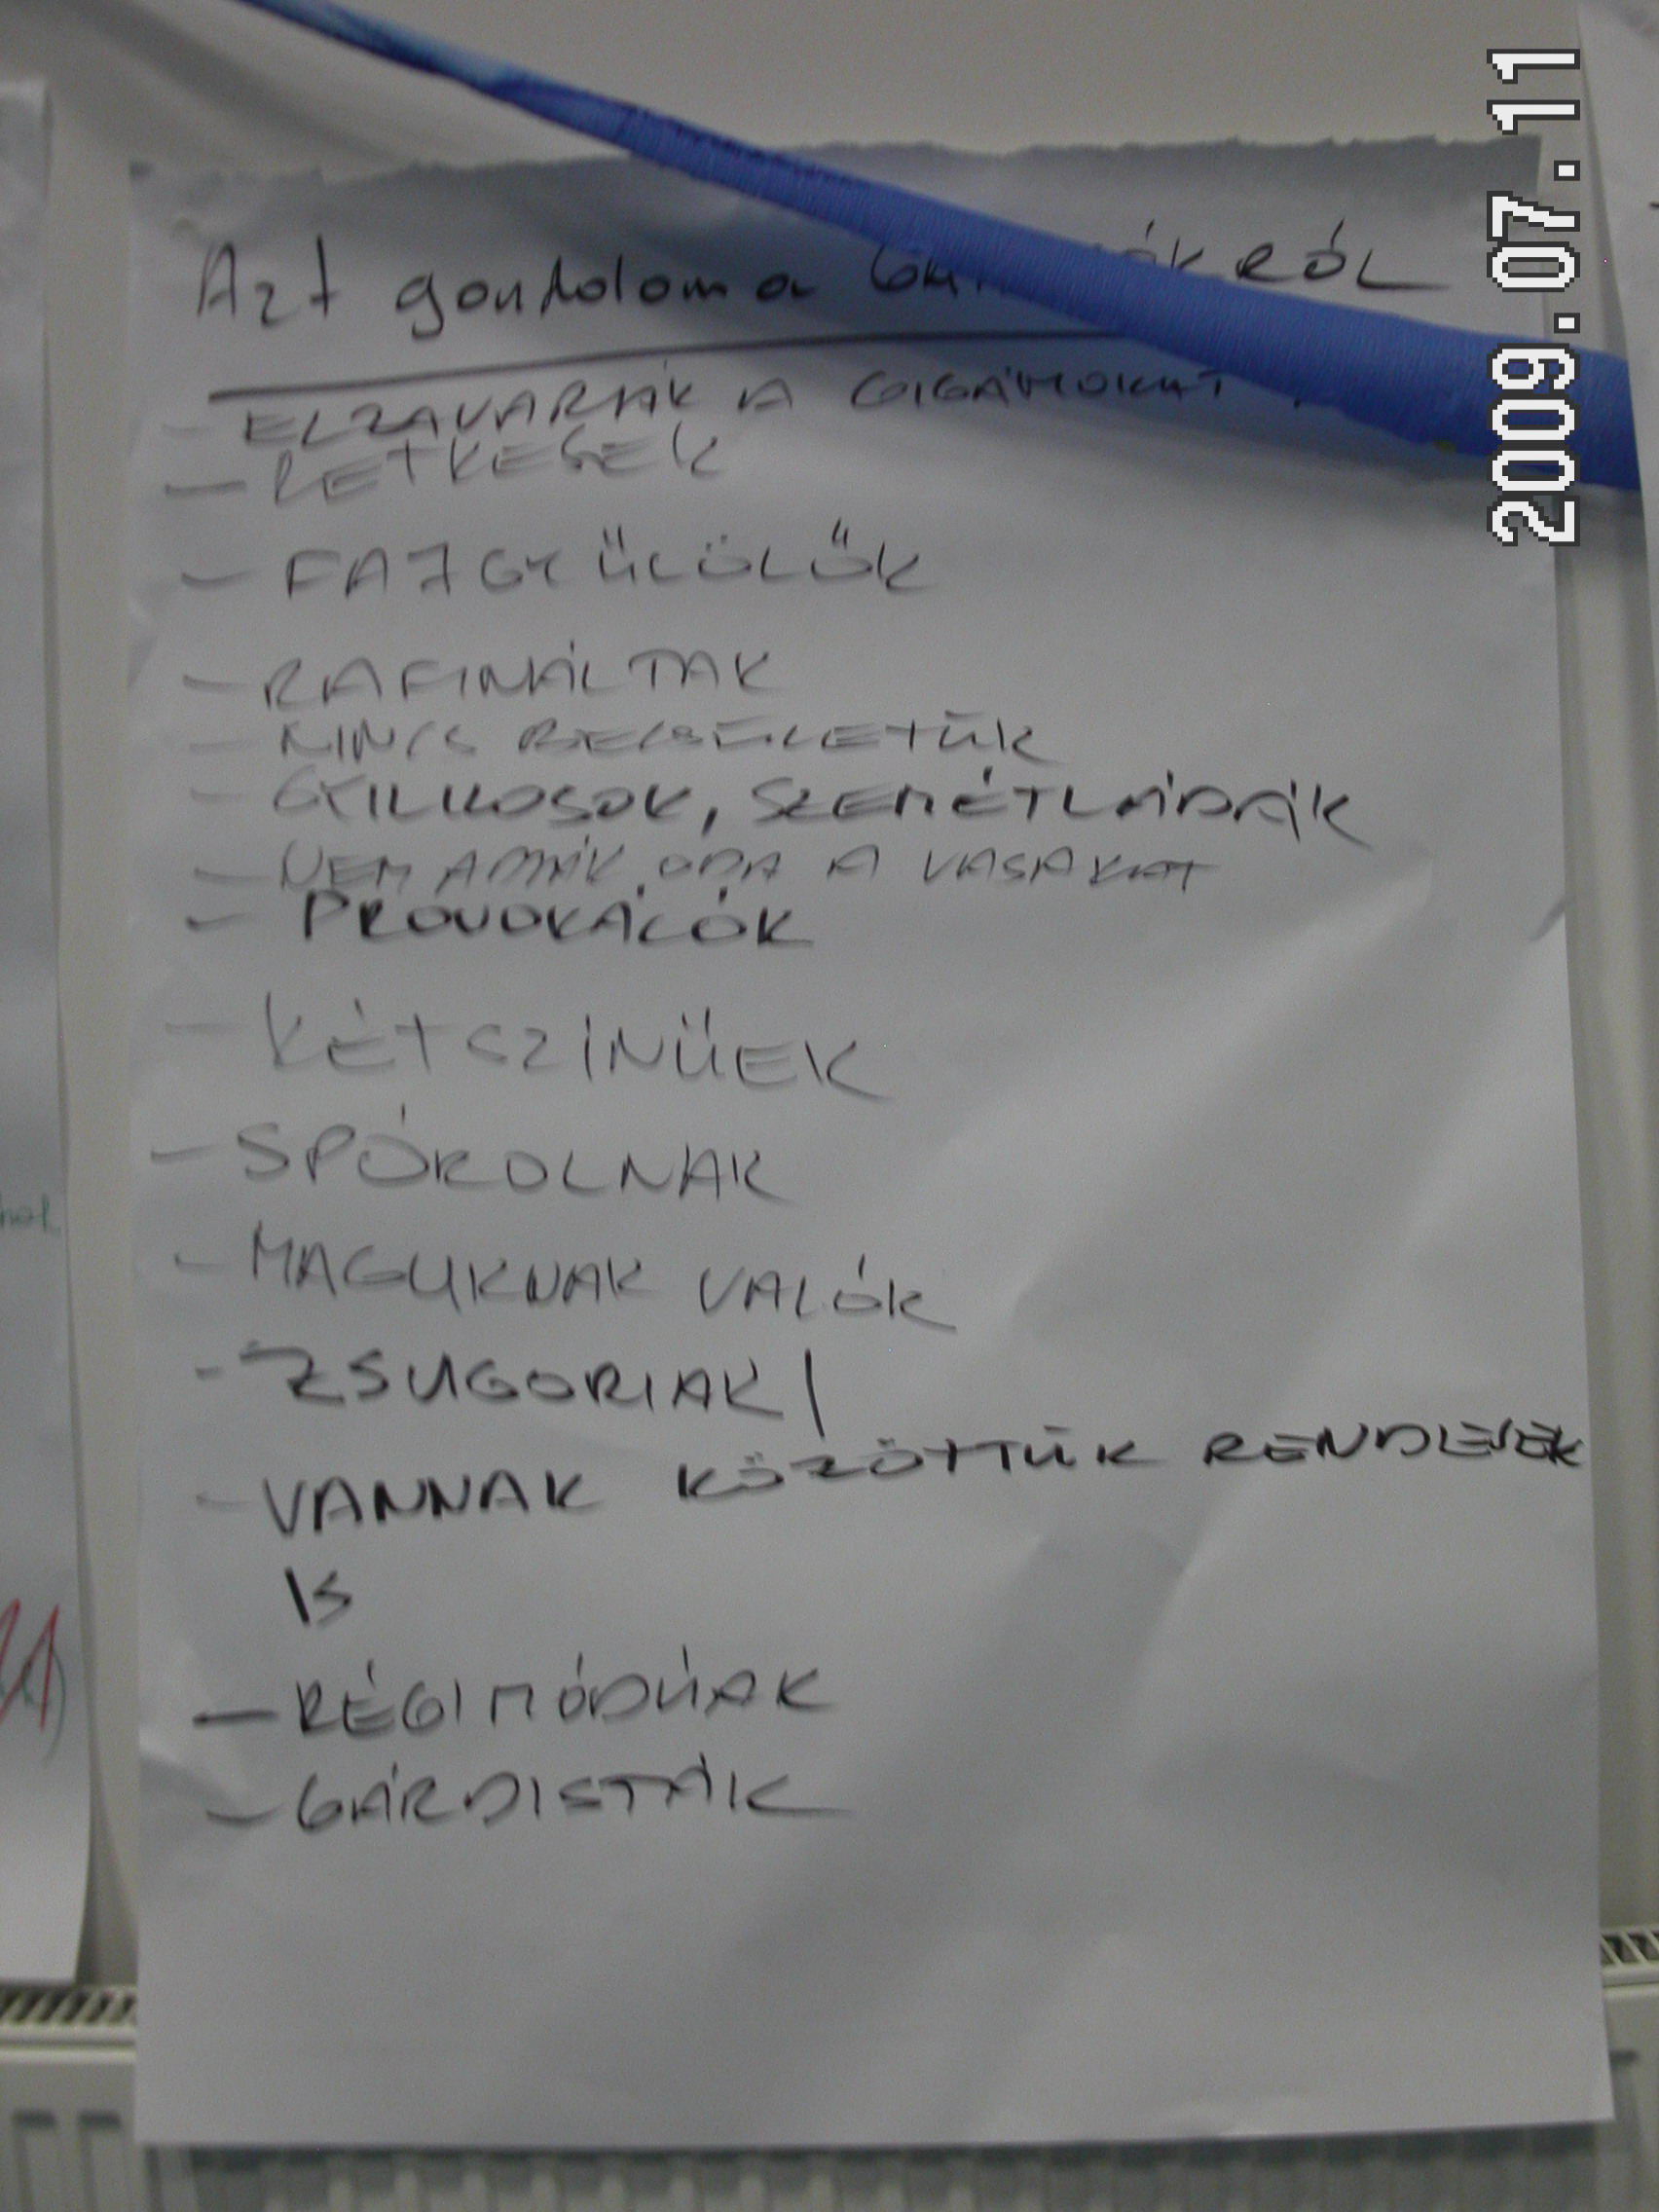 Azt gondolom a RÓL
- ELZAVARJÁK A CIGÁNYOKAT
- RETKESEK
- FAJGYŰLÖLŐK
- RAFINÁLTAK
- NINCS BECSÜLETÜK
- GYILKOSOK, SZEMÉTLÁDÁK
- NEM ADJÁK ODA A VASAKAT
- PROVOKÁLÓK
- KÉTSZINÜEK
- SPÓROLNAK
- MAGUKNAK VALÓK
- ZSUGORIAK
- VANNAK KÖZÖTTÜK RENDESEK
IS
- RÉGIMÓDÚAK
- GÁRDISTÁK
2009.07.11